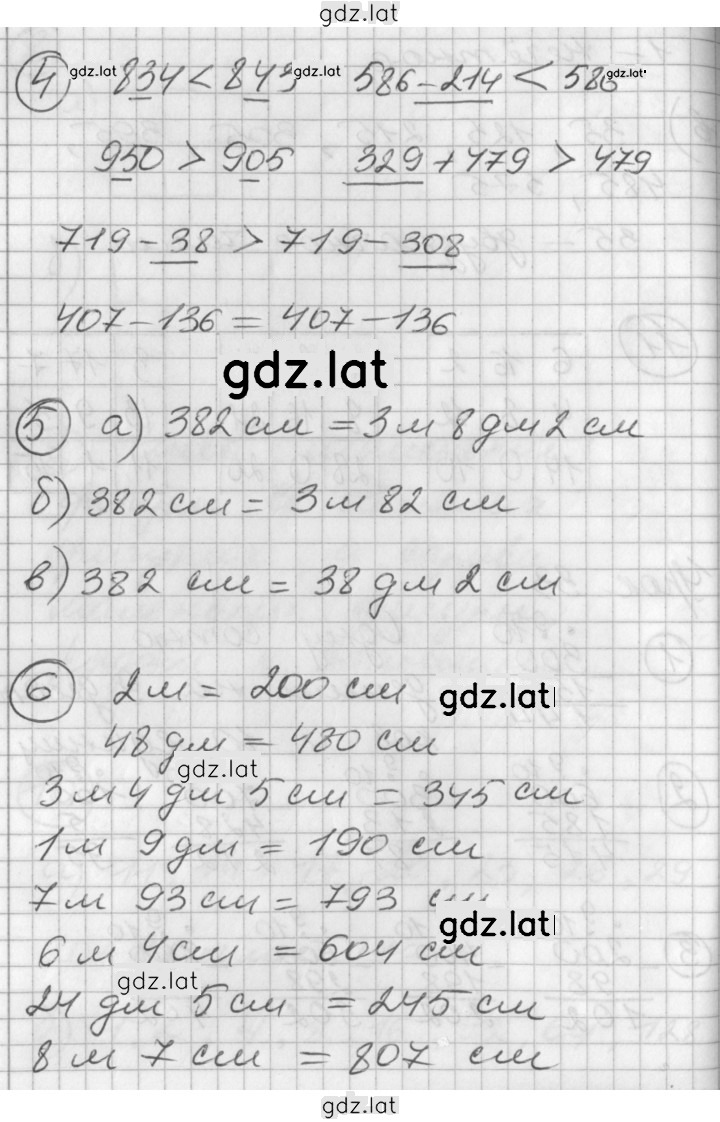 gdz.lat
4 gdz.lat 834 < 843 gdz.lat 586-214 < 586 gdz.lat
950 > 905 329+479 > 479
719-38 > 719-308
407-136 = 407-136
gdz.lat
5 а) 382 см = 3 м 8 дм 2 см
б) 382 см = 3 м 82 см
в) 382 см = 38 дм 2 см
6 2 м = 200 см gdz.lat
48 дм = 480 см
gdz.lat
3 м 4 дм 5 см = 345 см
1 м 9 дм = 190 см
7 м 93 см = 793 см
gdz.lat
6 м 4 см = 604 см
gdz.lat
24 дм 5 см = 245 см
8 м 7 см = 807 см
gdz.lat